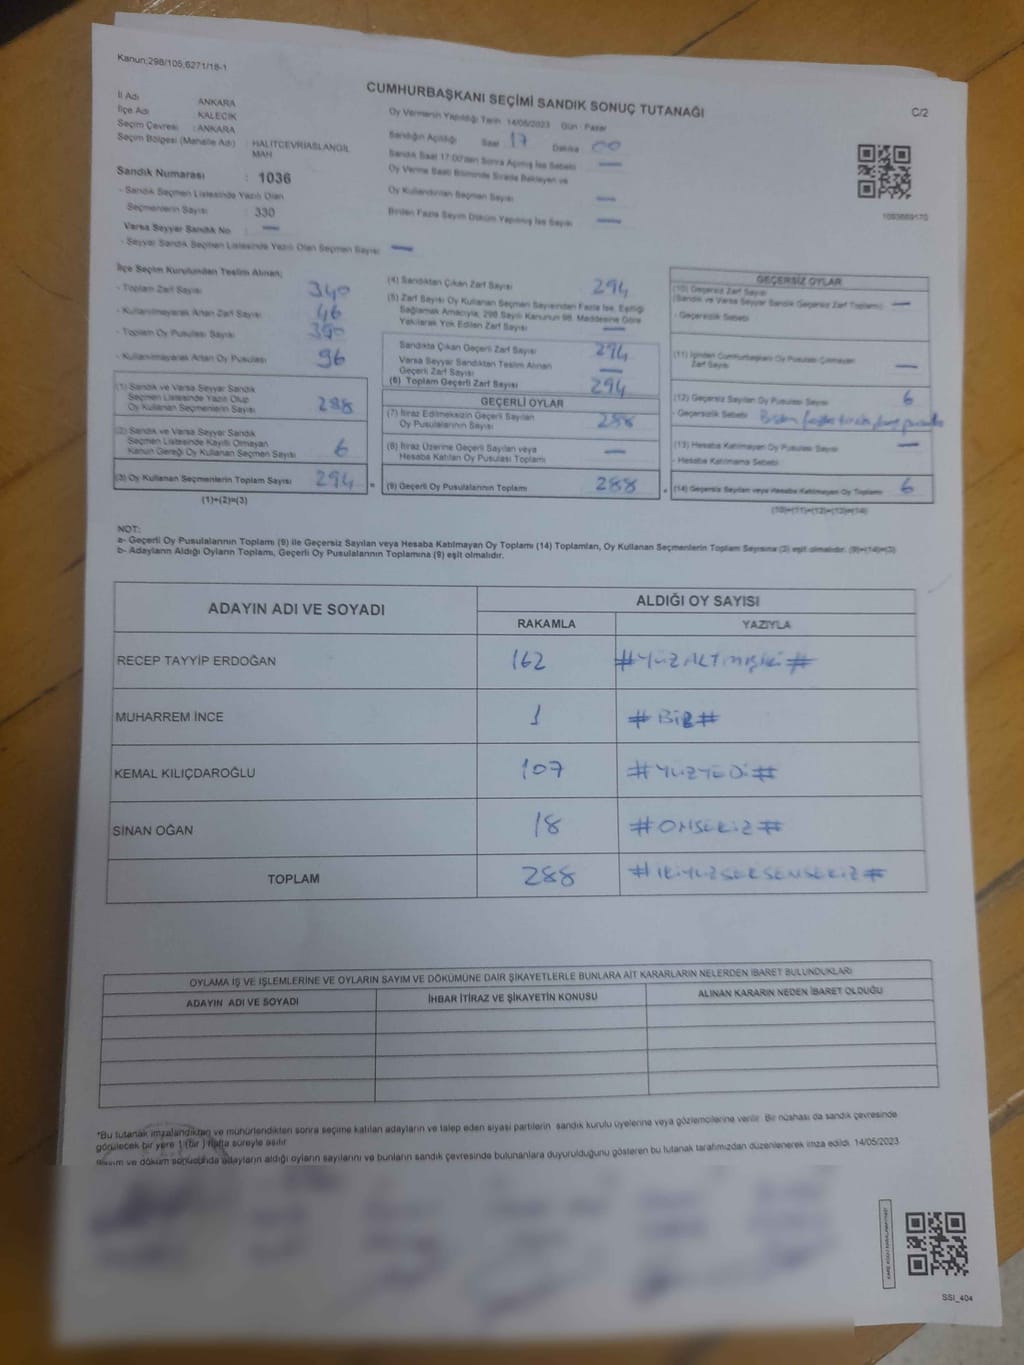 Kanun;298/105,6271/18-1
CUMHURBAŞKANI SEÇİMİ SANDIK SONUÇ TUTANAĞI
C/2
İl Adı ANKARA
İlçe Adı KALECİK
Seçim Çevresi : ANKARA
Seçim Bölgesi (Mahalle Adı) : HALITCEVRİASLANGİL
MAH
Sandık Numarası : 1036
- Sandık Seçmen Listesinde Yazılı Olan
Seçmenlerin Sayısı : 330
Varsa Seyyar Sandık No —
- Seyyar Sandık Seçmen Listesinde Yazılı Olan Seçmen Sayısı —
Oy Vermenin Yapıldığı Tarih 14/05/2023 Gün : Pazar
Sandığın Açıldığı Saat 17 Dakika 00
Sandık Saat 17:00'den Sonra Açılmış İse Sebebi —
Oy Verme Saati Bitiminde Sırada Bekleyen ve
Oy Kullandırılan Seçmen Sayısı —
Birden Fazla Sayım Döküm Yapılmış İse Sayısı —
1093669170
İlçe Seçim Kurulundan Teslim Alınan;
- Toplam Zarf Sayısı 340
- Kullanılmayarak Artan Zarf Sayısı 46
- Toplam Oy Pusulası Sayısı 390
- Kullanılmayarak Artan Oy Pusulası 96
(1) Sandık ve Varsa Seyyar Sandık
Seçmen Listesinde Yazılı Olup
Oy Kullanan Seçmenlerin Sayısı 288
(2) Sandık ve Varsa Seyyar Sandık
Seçmen Listesinde Kayıtlı Olmayan
Kanun Gereği Oy Kullanan Seçmen Sayısı 6
(3) Oy Kullanan Seçmenlerin Toplam Sayısı 294 =
(1)+(2)=(3)
(4) Sandıktan Çıkan Zarf Sayısı 294
(5) Zarf Sayısı Oy Kullanan Seçmen Sayısından Fazla İse, Eşitliği
Sağlamak Amacıyla, 298 Sayılı Kanunun 98. Maddesine Göre
Yakılarak Yok Edilen Zarf Sayısı —
Sandıkta Çıkan Geçerli Zarf Sayısı 294
Varsa Seyyar Sandıktan Teslim Alınan
Geçerli Zarf Sayısı —
(6) Toplam Geçerli Zarf Sayısı 294
GEÇERLİ OYLAR
(7) İtiraz Edilmeksizin Geçerli Sayılan
Oy Pusulalarının Sayısı 288
(8) İtiraz Üzerine Geçerli Sayılan veya
Hesaba Katılan Oy Pusulası Toplamı —
(9) Geçerli Oy Pusulalarının Toplamı 288 +
GEÇERSİZ OYLAR
(10) Geçersiz Zarf Sayısı
(Sandık ve Varsa Seyyar Sandık Geçersiz Zarf Toplamı) —
- Geçersizlik Sebebi
(11) İçinden Cumhurbaşkanı Oy Pusulası Çıkmayan
Zarf Sayısı —
(12) Geçersiz Sayılan Oy Pusulası Sayısı 6
- Geçersizlik Sebebi
(13) Hesaba Katılmayan Oy Pusulası Sayısı —
- Hesaba Katılmama Sebebi
(14) Geçersiz Sayılan veya Hesaba Katılmayan Oy Toplamı 6
(10)+(11)+(12)+(13)=(14)
NOT:
a- Geçerli Oy Pusulalarının Toplamı (9) ile Geçersiz Sayılan veya Hesaba Katılmayan Oy Toplamı (14) Toplamları, Oy Kullanan Seçmenlerin Toplam Sayısına (3) eşit olmalıdır. (9)+(14)=(3)
b- Adayların Aldığı Oyların Toplamı, Geçerli Oy Pusulalarının Toplamına (9) eşit olmalıdır.
ADAYIN ADI VE SOYADI
ALDIĞI OY SAYISI
RAKAMLA YAZIYLA
RECEP TAYYİP ERDOĞAN 162 #YÜZALTMIŞİKİ#
MUHARREM İNCE 1 #BİR#
KEMAL KILIÇDAROĞLU 107 #YÜZYEDİ#
SİNAN OĞAN 18 #ONSEKİZ#
TOPLAM 288 #İKİYÜZSEKSENSEKİZ#
OYLAMA İŞ VE İŞLEMLERİNE VE OYLARIN SAYIM VE DÖKÜMÜNE DAİR ŞİKAYETLERLE BUNLARA AİT KARARLARIN NELERDEN İBARET BULUNDUKLARI
ADAYIN ADI VE SOYADI İHBAR İTİRAZ VE ŞİKAYETİN KONUSU ALINAN KARARIN NEDEN İBARET OLDUĞU
*Bu tutanak imzalandıktan ve mühürlendikten sonra seçime katılan adayların ve talep eden siyasi partilerin sandık kurulu üyelerine veya gözlemcilerine verilir. Bir nüshası da sandık çevresinde
görülecek bir yere 1 (bir ) hafta süreyle asılır.
Sayım ve döküm sonucunda adayların aldığı oyların sayılarını ve bunların sandık çevresinde bulunanlara duyurulduğunu gösteren bu tutanak tarafımızdan düzenlenerek imza edildi. 14/05/2023
SSI_404